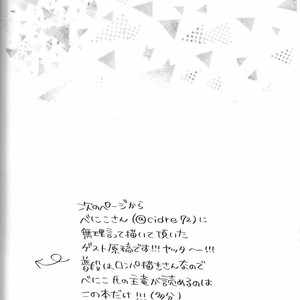 次のページから
べにこさん(@cidre92)に
無理言って描いて頂いた
ゲスト原稿です!!!ヤッター!!!
普段はロンパ描きさんなので
べにこ氏の主竜が読めるのは
この本だけ!!!(多分)